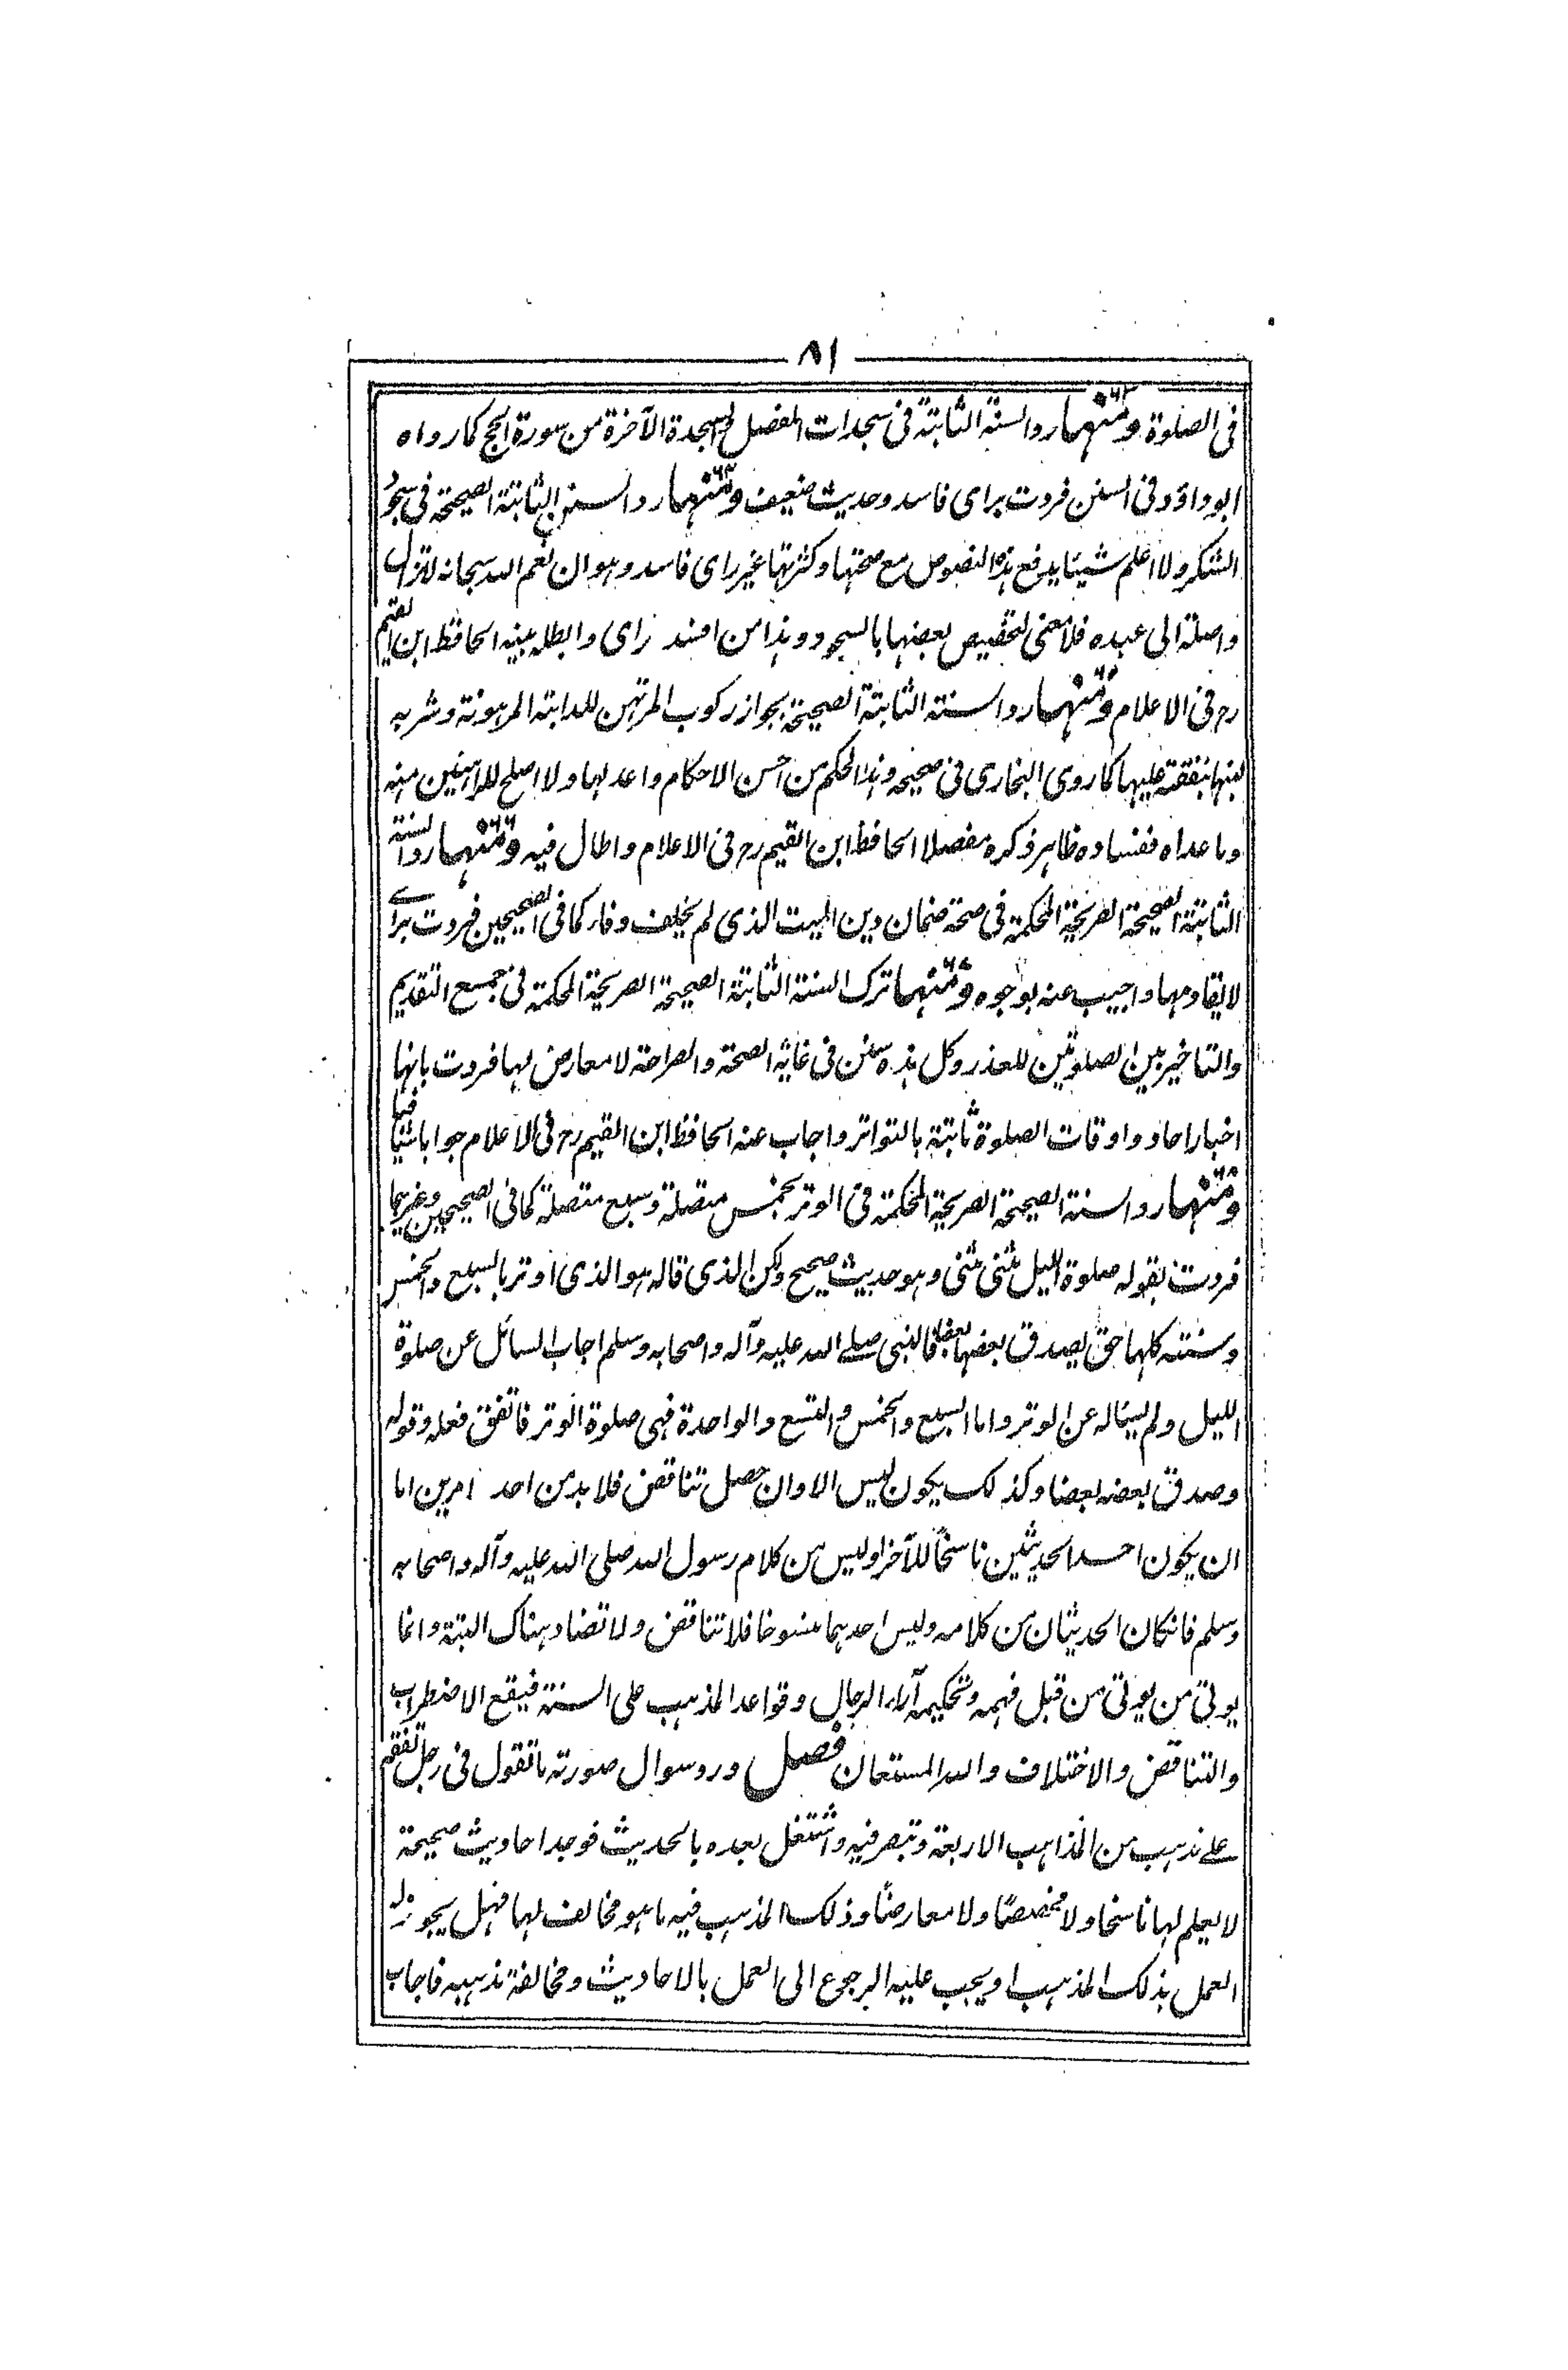 ٨١
فى الصلوة ومنها رد السنة الثابتة فى سجدات المفصل والسجدة الآخرة من سورة الحج كما رواه
ابو داؤد فى السنن فردت براى فاسد وحديث ضعيف ومنها رد السنن الثابتة الصحيحة فى سجود
الشكر ولا اعلم شيئا يدفع هذه النصوص مع صحتها وكثرتها غير راى فاسد وهو ان نعم الله سبحانه لا تزال
واصلة الى عبده فلا معنى لتخصيص بعضها بالسجود وهذا من افسد راى وابطله بينه الحافظ ابن القيم
رح فى الاعلام ومنها رد السنة الثابتة الصحيحة بجواز ركوب المرتهن للدابة المرهونة وشربه
لبنها بنفقته عليها كما روى البخارى فى صحيحه وهذا الحكم من احسن الاحكام واعدلها ولا اصلح للراهنين منه
وما عداه ففساده ظاهر ذكره مفصلا الحافظ ابن القيم رح فى الاعلام واطال فيه ومنها رد السنة
الثابتة الصحيحة الصريحة المحكمة فى صحة ضمان دين الميت الذى لم يخلف وفاء كما فى الصحيحين فردت براے
لا يقاومها واجيب عنه بوجوه ومنها ترك السنة الثابتة الصحيحة الصريحة المحكمة فى جمع التقديم
والتاخير بين الصلوتين للعذر وكل هذه سنن فى غاية الصحة والصراحة لا معارض لها فردت بانها
اخبار احاد واوقات الصلوة ثابتة بالتواتر واجاب عنه الحافظ ابن القيم رح فى الاعلام جوابا شافيا
ومنها رد السنة الصحيحة الصريحة المحكمة فى الوتر بخمس متصلة وسبع متصلة كما فى الصحيحين وغيرهما
فردت بقوله صلوة الليل مثنى مثنى وهو حديث صحيح ولكن الذى قاله هو الذى اوتر بالسبع والخمس
وسنته كلها حق يصدق بعضها بعضا فالنبى صلے الله عليه وآله واصحابه وسلم اجاب السائل عن صلوة
الليل ولم يساله عن الوتر واما السبع والخمس والتسع والواحدة فهى صلوة الوتر فاتفق فعله وقوله
وصدق بعضه بعضا وكذلك يكون ليس الا وان حصل تناقض فلا بد من احد امرين اما
ان يكون احد الحديثين ناسخاً للآخر او ليس من كلام رسول الله صلى الله عليه وآله واصحابه
وسلم فان كان الحديثان من كلامه وليس احدهما منسوخا فلا تناقض ولا تضاد هناك البتة وانما
يوتى من يوتى من قبل فهمه وتحكيمه آراء الرجال وقواعد المذهب على السنة فيقع الاضطراب
والتناقض والاختلاف والله المستعان فصل ورد سوال صورته ما تقول فى رجل تفقه
علے مذهب من المذاهب الاربعة وتبصر فيه واشتغل بعده بالحديث فوجد احاديث صحيحة
لا يعلم لها ناسخا ولا مخصصاً ولا معارضاً وذلك المذهب فيه ما هو مخالف لها فهل يجوز له
العمل بذلك المذهب او يجب عليه الرجوع الى العمل بالاحاديث ومخالفة مذهبه فاجاب